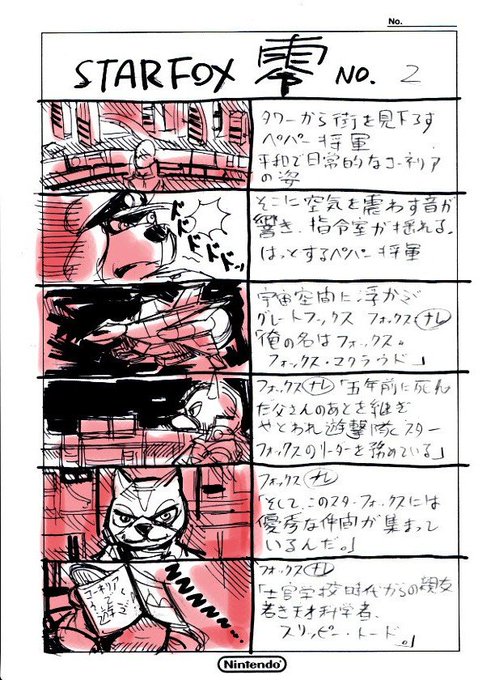 No.
STARFOX 零 NO. 2
タワーから街を見下ろす
ペパー将軍
平和で日常的なコーネリア
の姿
ドドドドドッ
そこに空気を震わす音が
響き、指令室が揺れる。
はっとするペパー将軍
宇宙空間に浮かぶ
グレートフォックス フォックス ナレ
「俺の名はフォックス。
フォックス・マクラウド。」
フォックス ナレ 「五年前に死ん
だ父さんのあとを継ぎ
やとわれ遊撃隊スター
フォックスのリーダーを務めている」
フォックス ナレ
「そして、このスターフォックスには
優秀な仲間が集まって
いるんだ。」
コーネリア
で
遊ぶ
フォックス ナレ
「士官学校時代からの親友
若き天才科学者、
スリッピー・トード。」
Nintendo